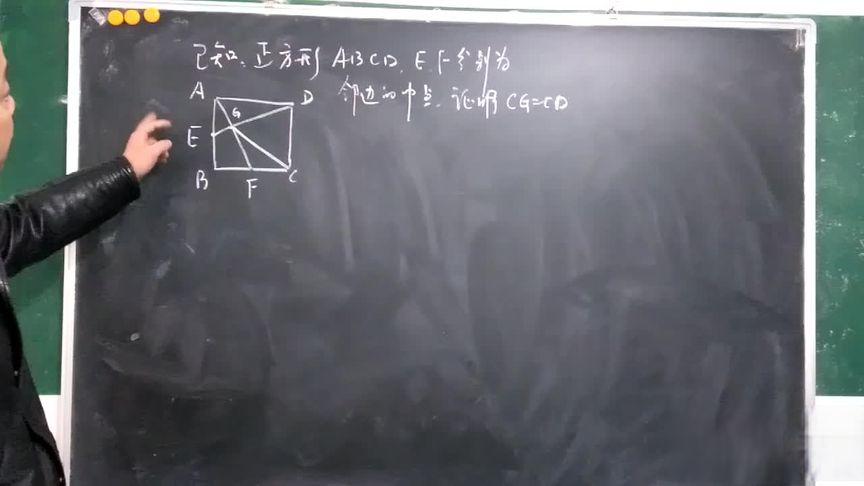 已知:正方形ABCD,E.F分别为
邻边的中点.证明CG=CD
A
D
G
E
B
F
C